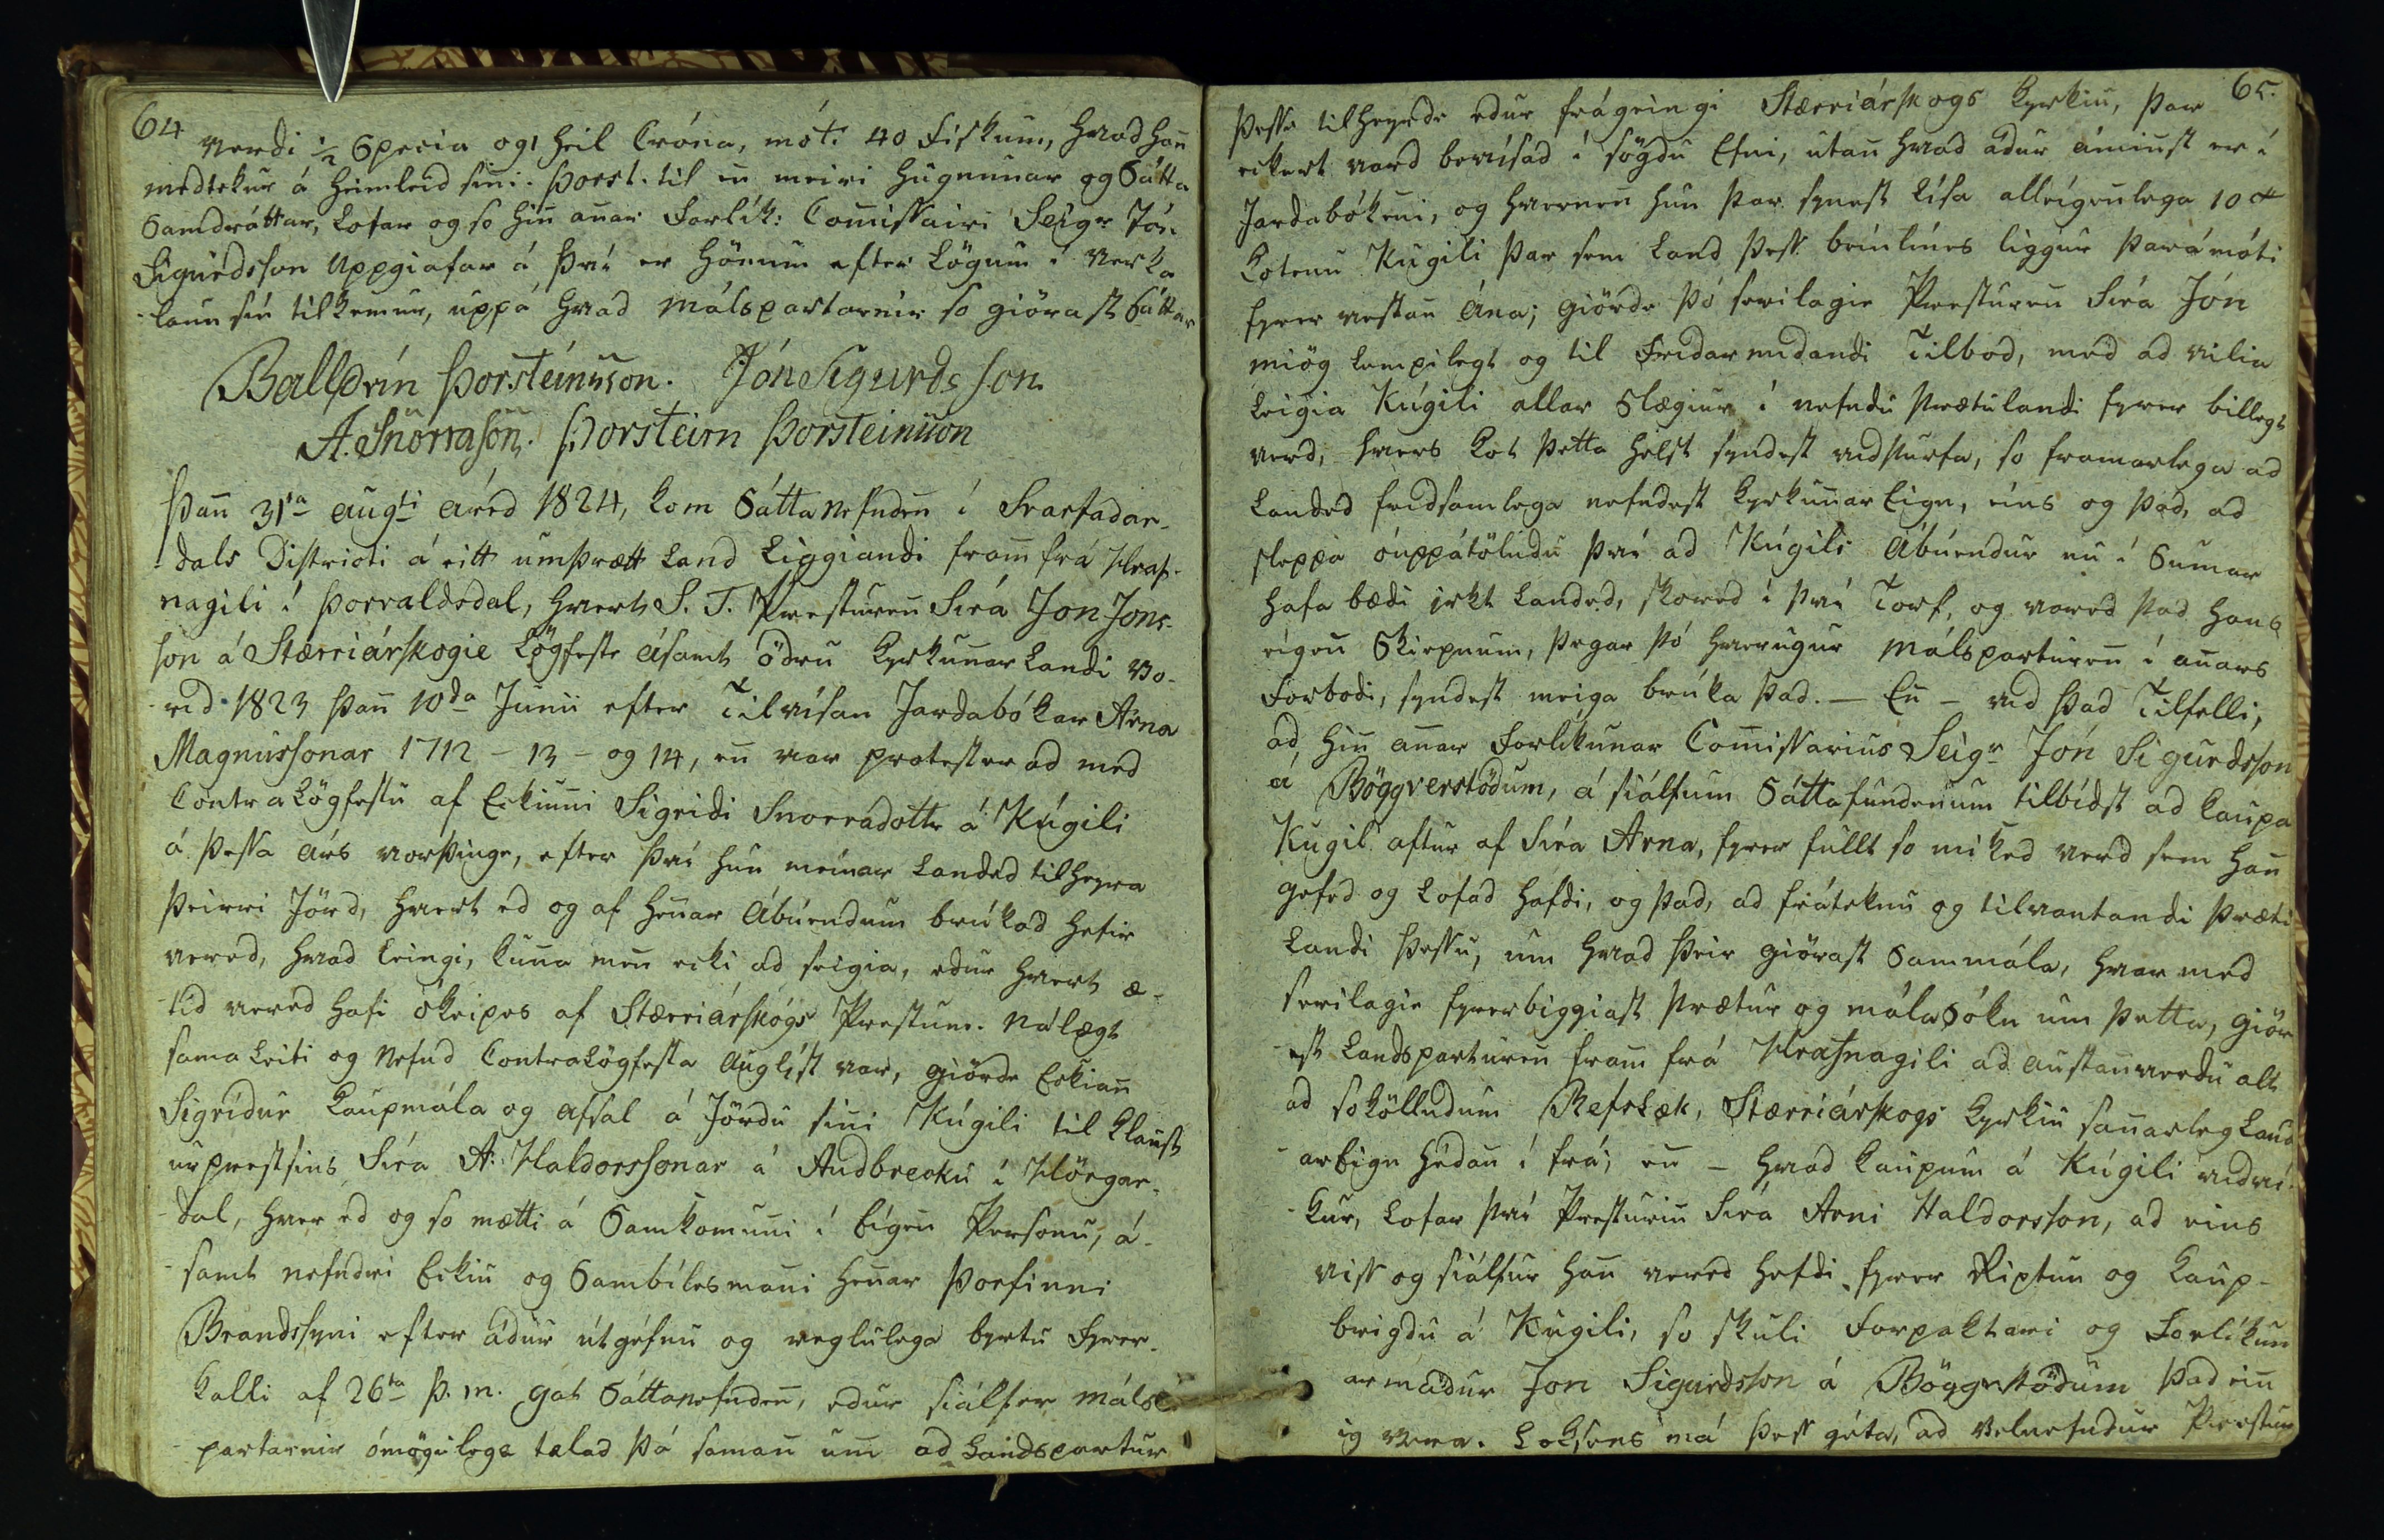 64
verdi ½ Specia og 1 heil Króna, mót 40 Fiskum, hvad han̄
medtekur á heimleid sin̄i. Þorst. til en meiri hugnunar og Sátta
Samdráttar, Lofar og so hin̄ an̄ar Forlík: Com̄issairi Seigr Jón
Sigurdsson Uppgiafar á því er hönum efter Lögum í Verka
-laun sín tilkemur, uppá hvad málspartarnir so giörast Sáttar
Balldvin Þorsteinsson. Jón Sigurdsson
A. Snorrason. Þorsteirn Þorsteinsson
Þan̄ 31ta Augti Áred 1824, kom Sátta Nefnden̄ í Svarfadar-
dals Districti á eitt umþrætt Land Liggiandi fram̄ frá Hraf-
nagili í Þorvaldsdal, hvert S. T. Presturen̄ Síra Jon Jons-
son á Stærriárskogie Lögfeste ásamt ödru Kyrkun̄ar Landi Vo-
rid 1823 þan̄ 10da Junii efter Tilvísan Jardabókar Árna
Magnussonar 1712 - 13 - og 14, en̄ var protesterad med
Contra Lögfestu af Eckiun̄i Sigridi Snorradottr á Kúgili
á þessa árs vorþinge, efter því hún meinar Landed tilheyra
þeirri Jörd, hvert ed og af hen̄ar Ábúendum brúkad hefir
vered, hvad leingi, kun̄a men̄ ecki ad seigia, edur hvert æ-
tid vered hafi ókeipes af Stærriárskógs Prestum. Nálægt
sama Leiti og Nefnd ContraLögfesta auglyst var, giörde Eckian̄
Sigrídur Kaupmála og Afsal á Jördu sin̄i Kúgili til Klaust
urprestsins Síra A. Haldorssonar á Audbrecku í Hörgar-
dal, hver ed og so mætti á Samkomun̄i í Eigen Personu, á-
samt nefndri Eckiu og Sambílesman̄i hen̄ar Þorfinni
Brandssyni efter ádur útgéfnu og reglulega byrtu Fyrer-
kalli af 26ta þ. m. gat Sáttanefnden̄, edur siálfer máls
partarnir ómögulega talad þá saman̄ um̄ ad Landspartur
65.
þesse tilheyrde edur frágeingi Stærriárskogs Kyrkiu, þar
eckert vard bevísad í sögdu Efni, utan̄ hvad ádur ámin̄st er í
Jardabóken̄i, og hvernen̄ hún þar synest Lísa alleigenlega 10 ct
Kotenu Kugili þar sem Land þess beinlínes liggur þará móti
fyrer vestan̄ ána; giörde þó serilagie Presturen̄ Síra Jón
miög Lempilegt og til Fridar midandi Tilbod, med ad vilia
Leigia Kúgili allar Slægiur í nefndu þrætulandi fyrer billegt
verd, hvers Kot þetta helst syndest vidþurfa, so framarlega ad
Landed fridsamlega nefndest Kyrkun̄ar Eign, eins og þad, ad
sleppa óuppátöludu því ad Kúgils Ábúendur nú í Sumar
hafa bædi yrkt Landed, skored í því Torf, og vared þad hans
eigen Skiepnum, þegar þó hverugur málsparturen̄ í an̄ars
Forbodi, syndest meiga brúka þad. — En̄ - vid þad Tilfelli,
ad hin̄ an̄ar Forlíkunar Com̄issarius Seigr Jón Sigurdsson
á Böggverstödum, á siálfum Sáttafundenum tilbídst ad kaupa
Kugil aftur af Síra Arna, fyrer fullt so miked verd sem han̄
gefed og Lofad hafdi, og þad, ad fráteknu og tilvantandi þrætu
Landi þessu, um hvad þeir giörast Sammála, hvar med
serilagie fyrerbiggiast þrætur og málasókn um þetta, giör
-est Landsparturen̄ fram̄ frá Hrafnagili ad austan̄verdu alt
ad soköllludum Refslæk, Stærriárskogs Kyrkiu san̄arleg Land
-areign hédan̄ í frá; en̄ - hvad Kaupum á Kúgili vidví-
-kur, Lofar því Presturin̄ Síra Arni Haldorsson, ad eins
viss og siálfur han̄ vered hefdi fyrer Riptun og Kaup-
brigdu á Kúgili, so skuli Forpaktari og Forlíkun
armadur Jon Sigurdsson á Böggvstödum þad ein̄
ig vera. Loksens má þess géta, ad Velnefndur Prestur